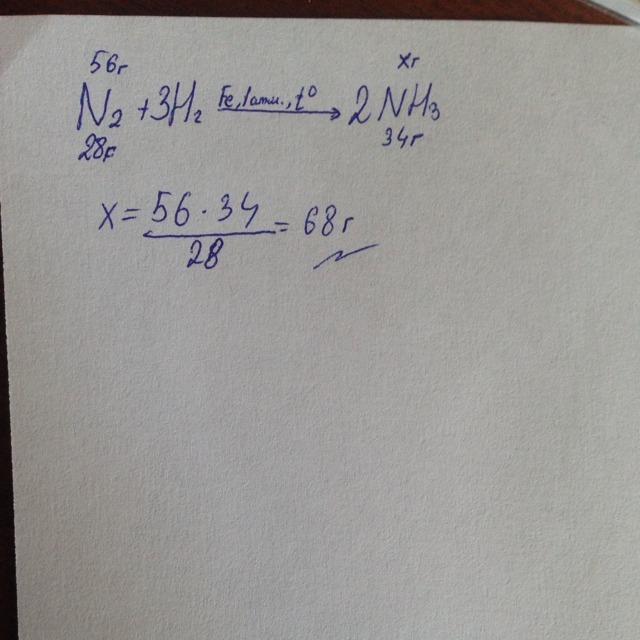 56г хг
N₂ + 3H₂ Fe, 1атм., t° → 2NH₃
28г 34г
x = 56 · 34 / 28 = 68г